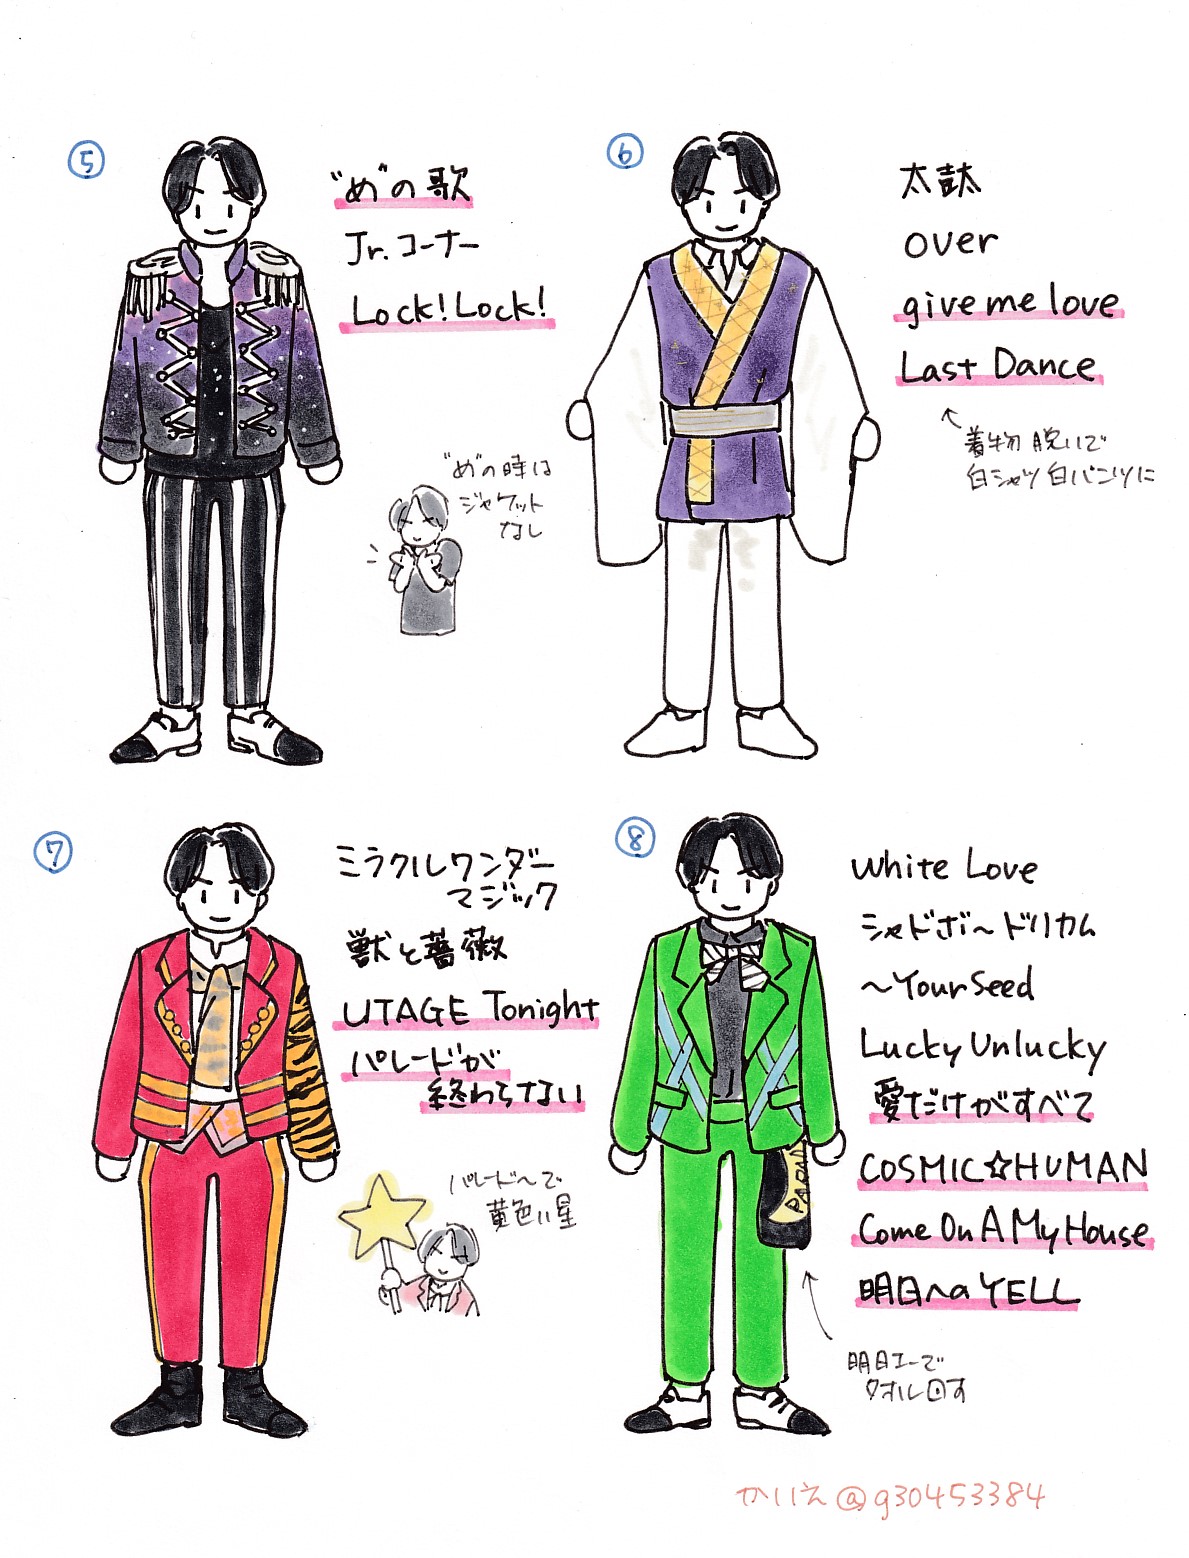 ⑤
"め"の歌
Jr.コーナー
Lock!Lock!
"め"の時は
ジャケット
なし
⑥
太鼓
over
give me love
Last Dance
着物脱いで
白シャツ白パンツに
⑦
ミラクルワンダー
マジック
獣と薔薇
UTAGE Tonight
パレードが
終わらない
パレード〜で
黄色い星
⑧
White Love
シャドボ〜ドリカム
〜Your Seed
Lucky Unlucky
愛だけがすべて
COSMIC☆HUMAN
Come On A My House
明日へのYELL
PARA
明日エーで
タオル回す
かいえ@g30453384